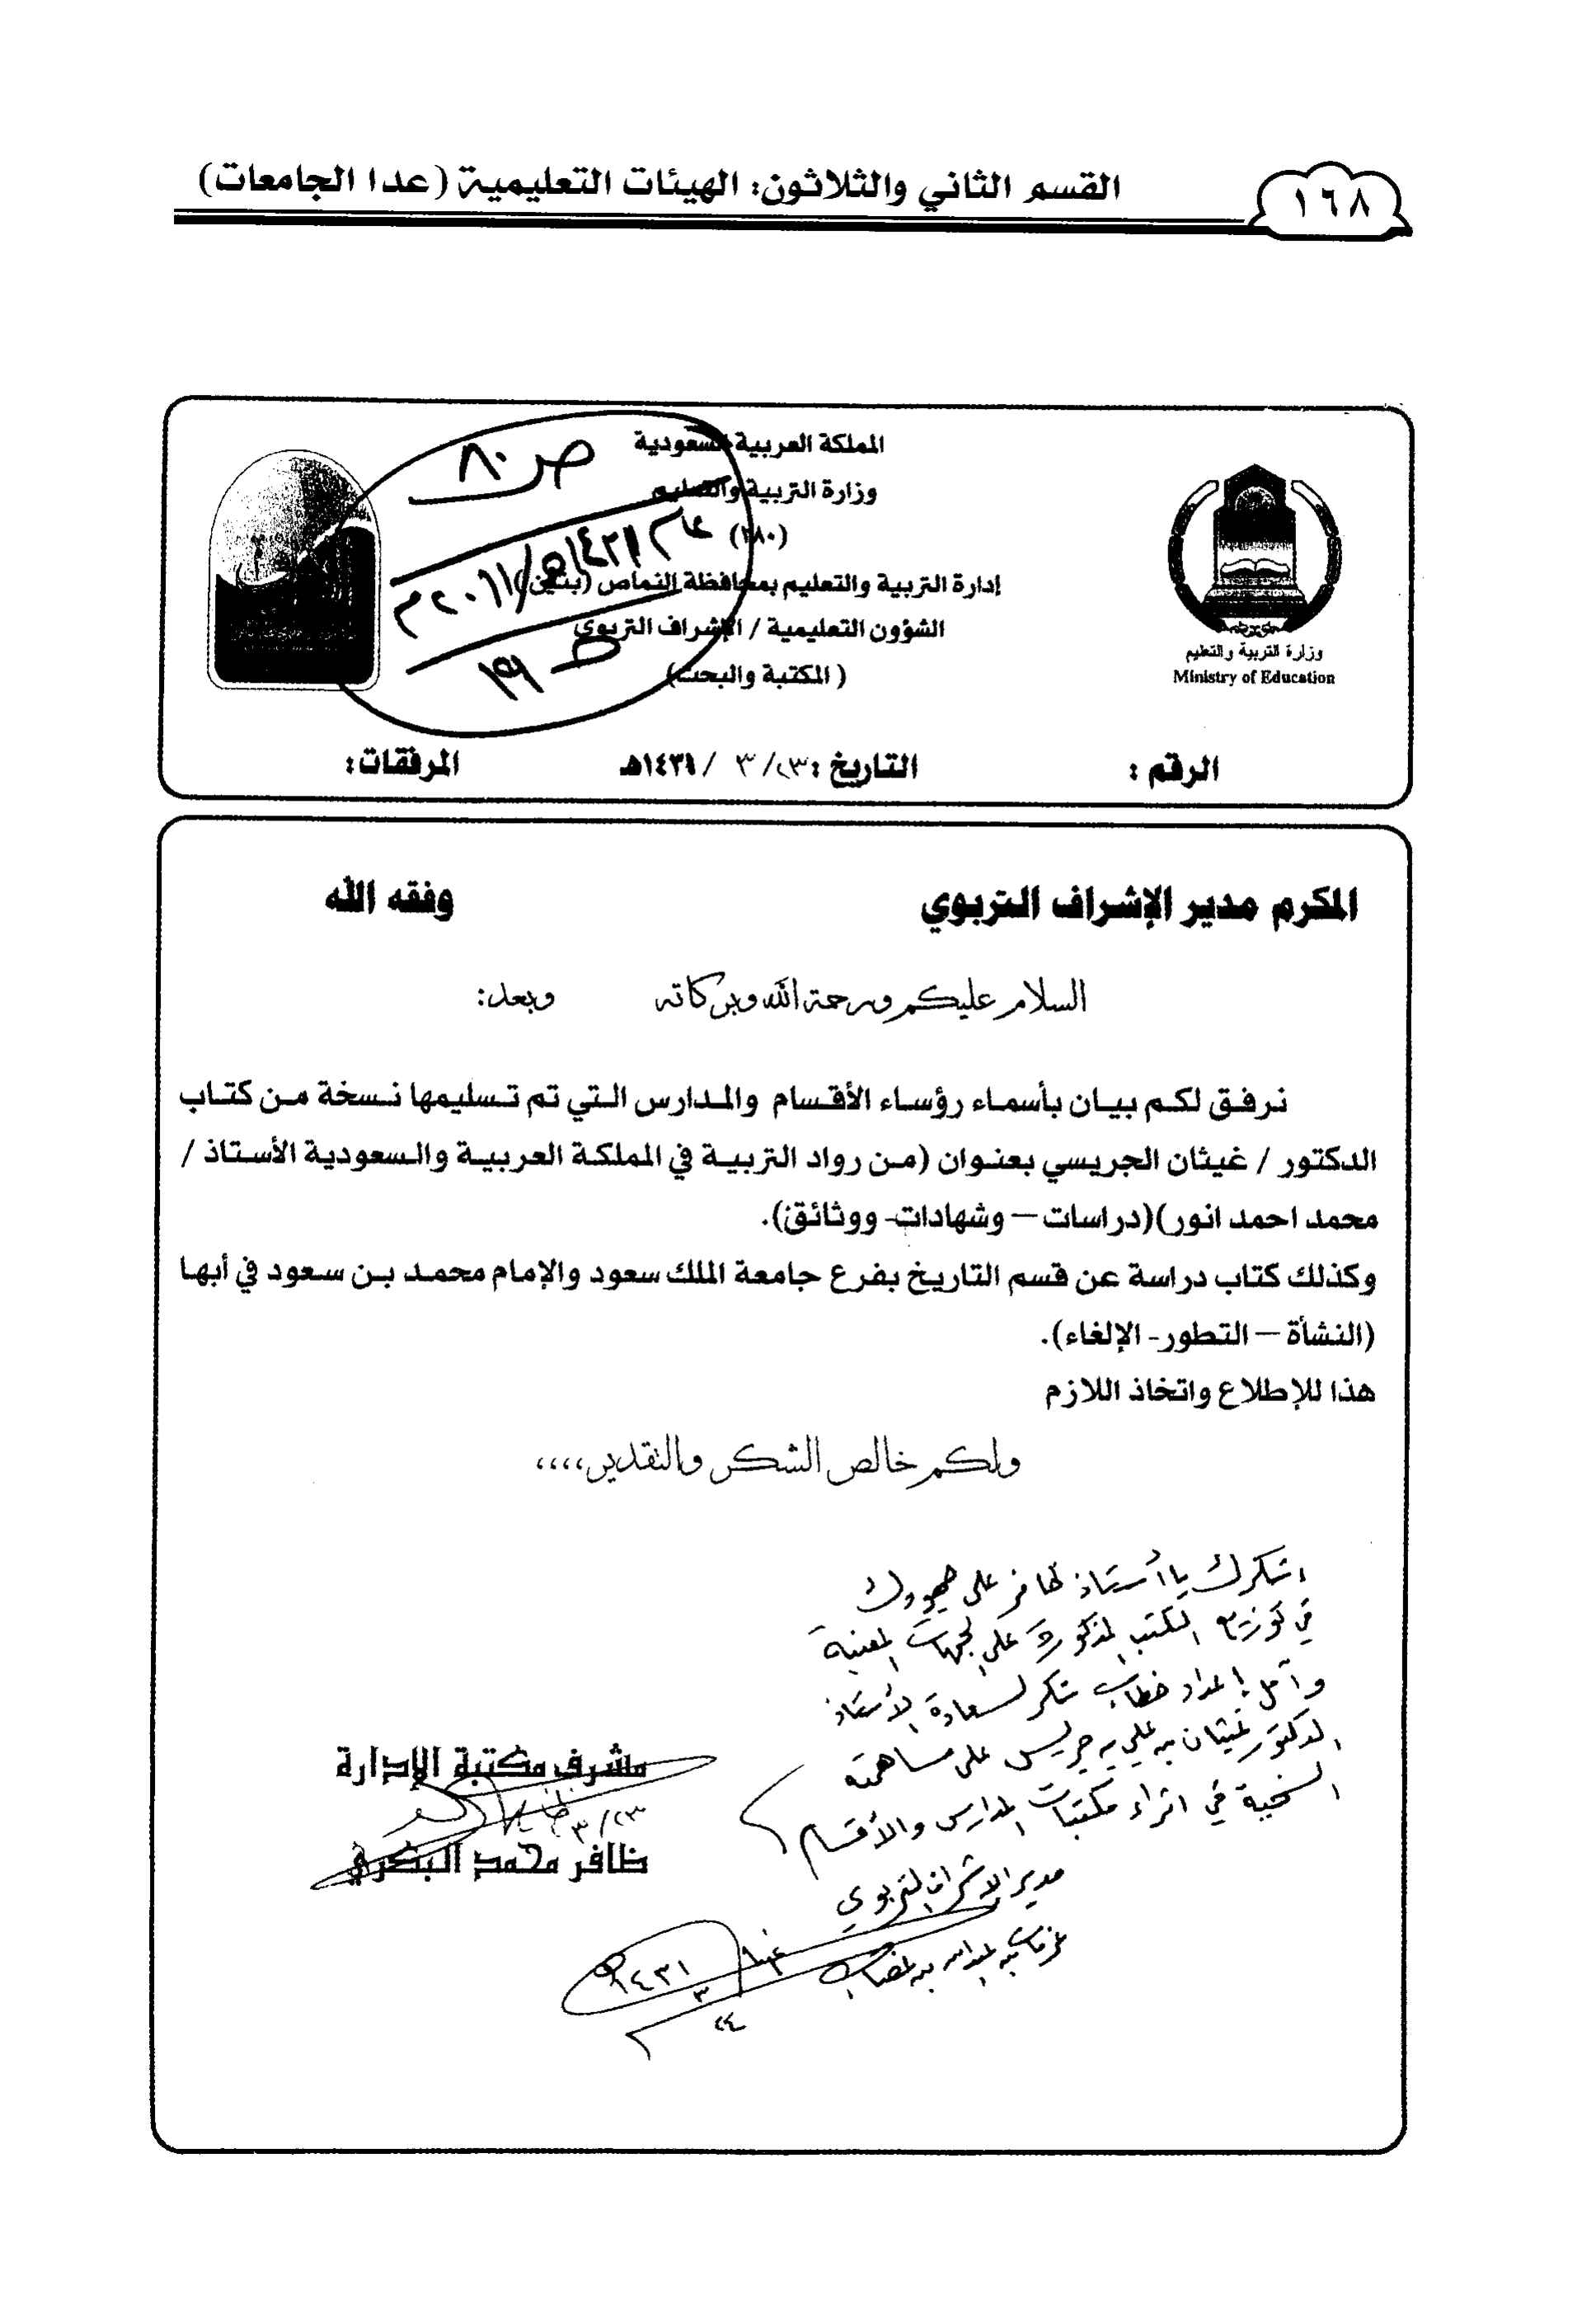 القسم الثاني والثلاثون: الهيئات التعليمية (عدا الجامعات)
١٦٨
المملكة العربية السعودية
وزارة التربية والتعليم
(٢٨٠)
إدارة التربية والتعليم بمحافظة النماص (بنين)
الشؤون التعليمية / الإشراف التربوي
(المكتبة والبحث)
ص ٨٠
وزارة التربية والتعليم
Ministry of Education
الرقم :
التاريخ : ٢٣/ ٣ / ١٤٣١هـ
المرفقات:
المكرم مدير الإشراف التربوي وفقه الله
السلام عليكم ورحمة الله وبركاته وبعد:
نرفق لكم بيان بأسماء رؤساء الأقسام والمدارس التي تم تسليمها نسخة من كتاب
الدكتور / غيثان الجريسي بعنوان (من رواد التربية في المملكة العربية والسعودية الأستاذ /
محمد احمد انور)(دراسات – وشهادات- ووثائق).
وكذلك كتاب دراسة عن قسم التاريخ بفرع جامعة الملك سعود والإمام محمد بن سعود في أبها
(النشأة – التطور- الإلغاء).
هذا للإطلاع واتخاذ اللازم
ولكم خالص الشكر والتقدير,,,,
اشكرك يا أستاذ ظافر على جهودك
في توزيع الكتب المذكورة على الجهات المعنية
وآمل إعداد خطاب شكر لسعادة الأستاذ
الدكتور غيثان بن علي بن جريس على مساهمته
السخية في اثراء مكتبات المدارس والأقسام
مدير الإشراف التربوي
١٤٣١
٣
٢٤
مشرف مكتبة الإدارة
٣/٢٣
ظافر محمد البكري